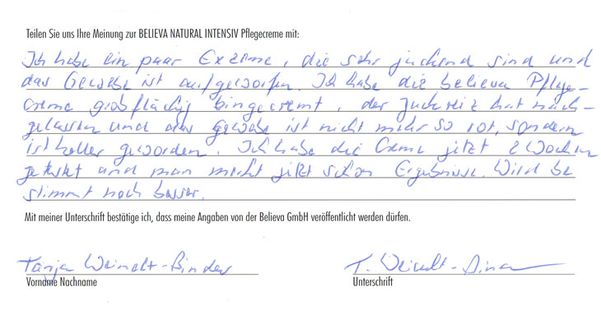 Teilen Sie uns Ihre Meinung zur BELIEVA NATURAL INTENSIV Pflegecreme mit:
Ich habe ein paar Exzeme, die sehr juckend sind und
das Gewebe ist aufgeworfen. Ich habe die believa Pflege-
creme großflächig eingecremt, der Juckreiz hat nach-
gelassen und das gewebe ist nicht mehr so rot, sondern
ist heller geworden. Ich habe die Creme jetzt 2 Wochen
getestet und man jetzt schon Ergebnisse. Wird be
stimmt noch besser.
Mit meiner Unterschrift bestätige ich, dass meine Angaben von der Believa GmbH veröffentlicht werden dürfen.
Tanja Weindt-Binder
T.
Vorname Nachname
Unterschrift